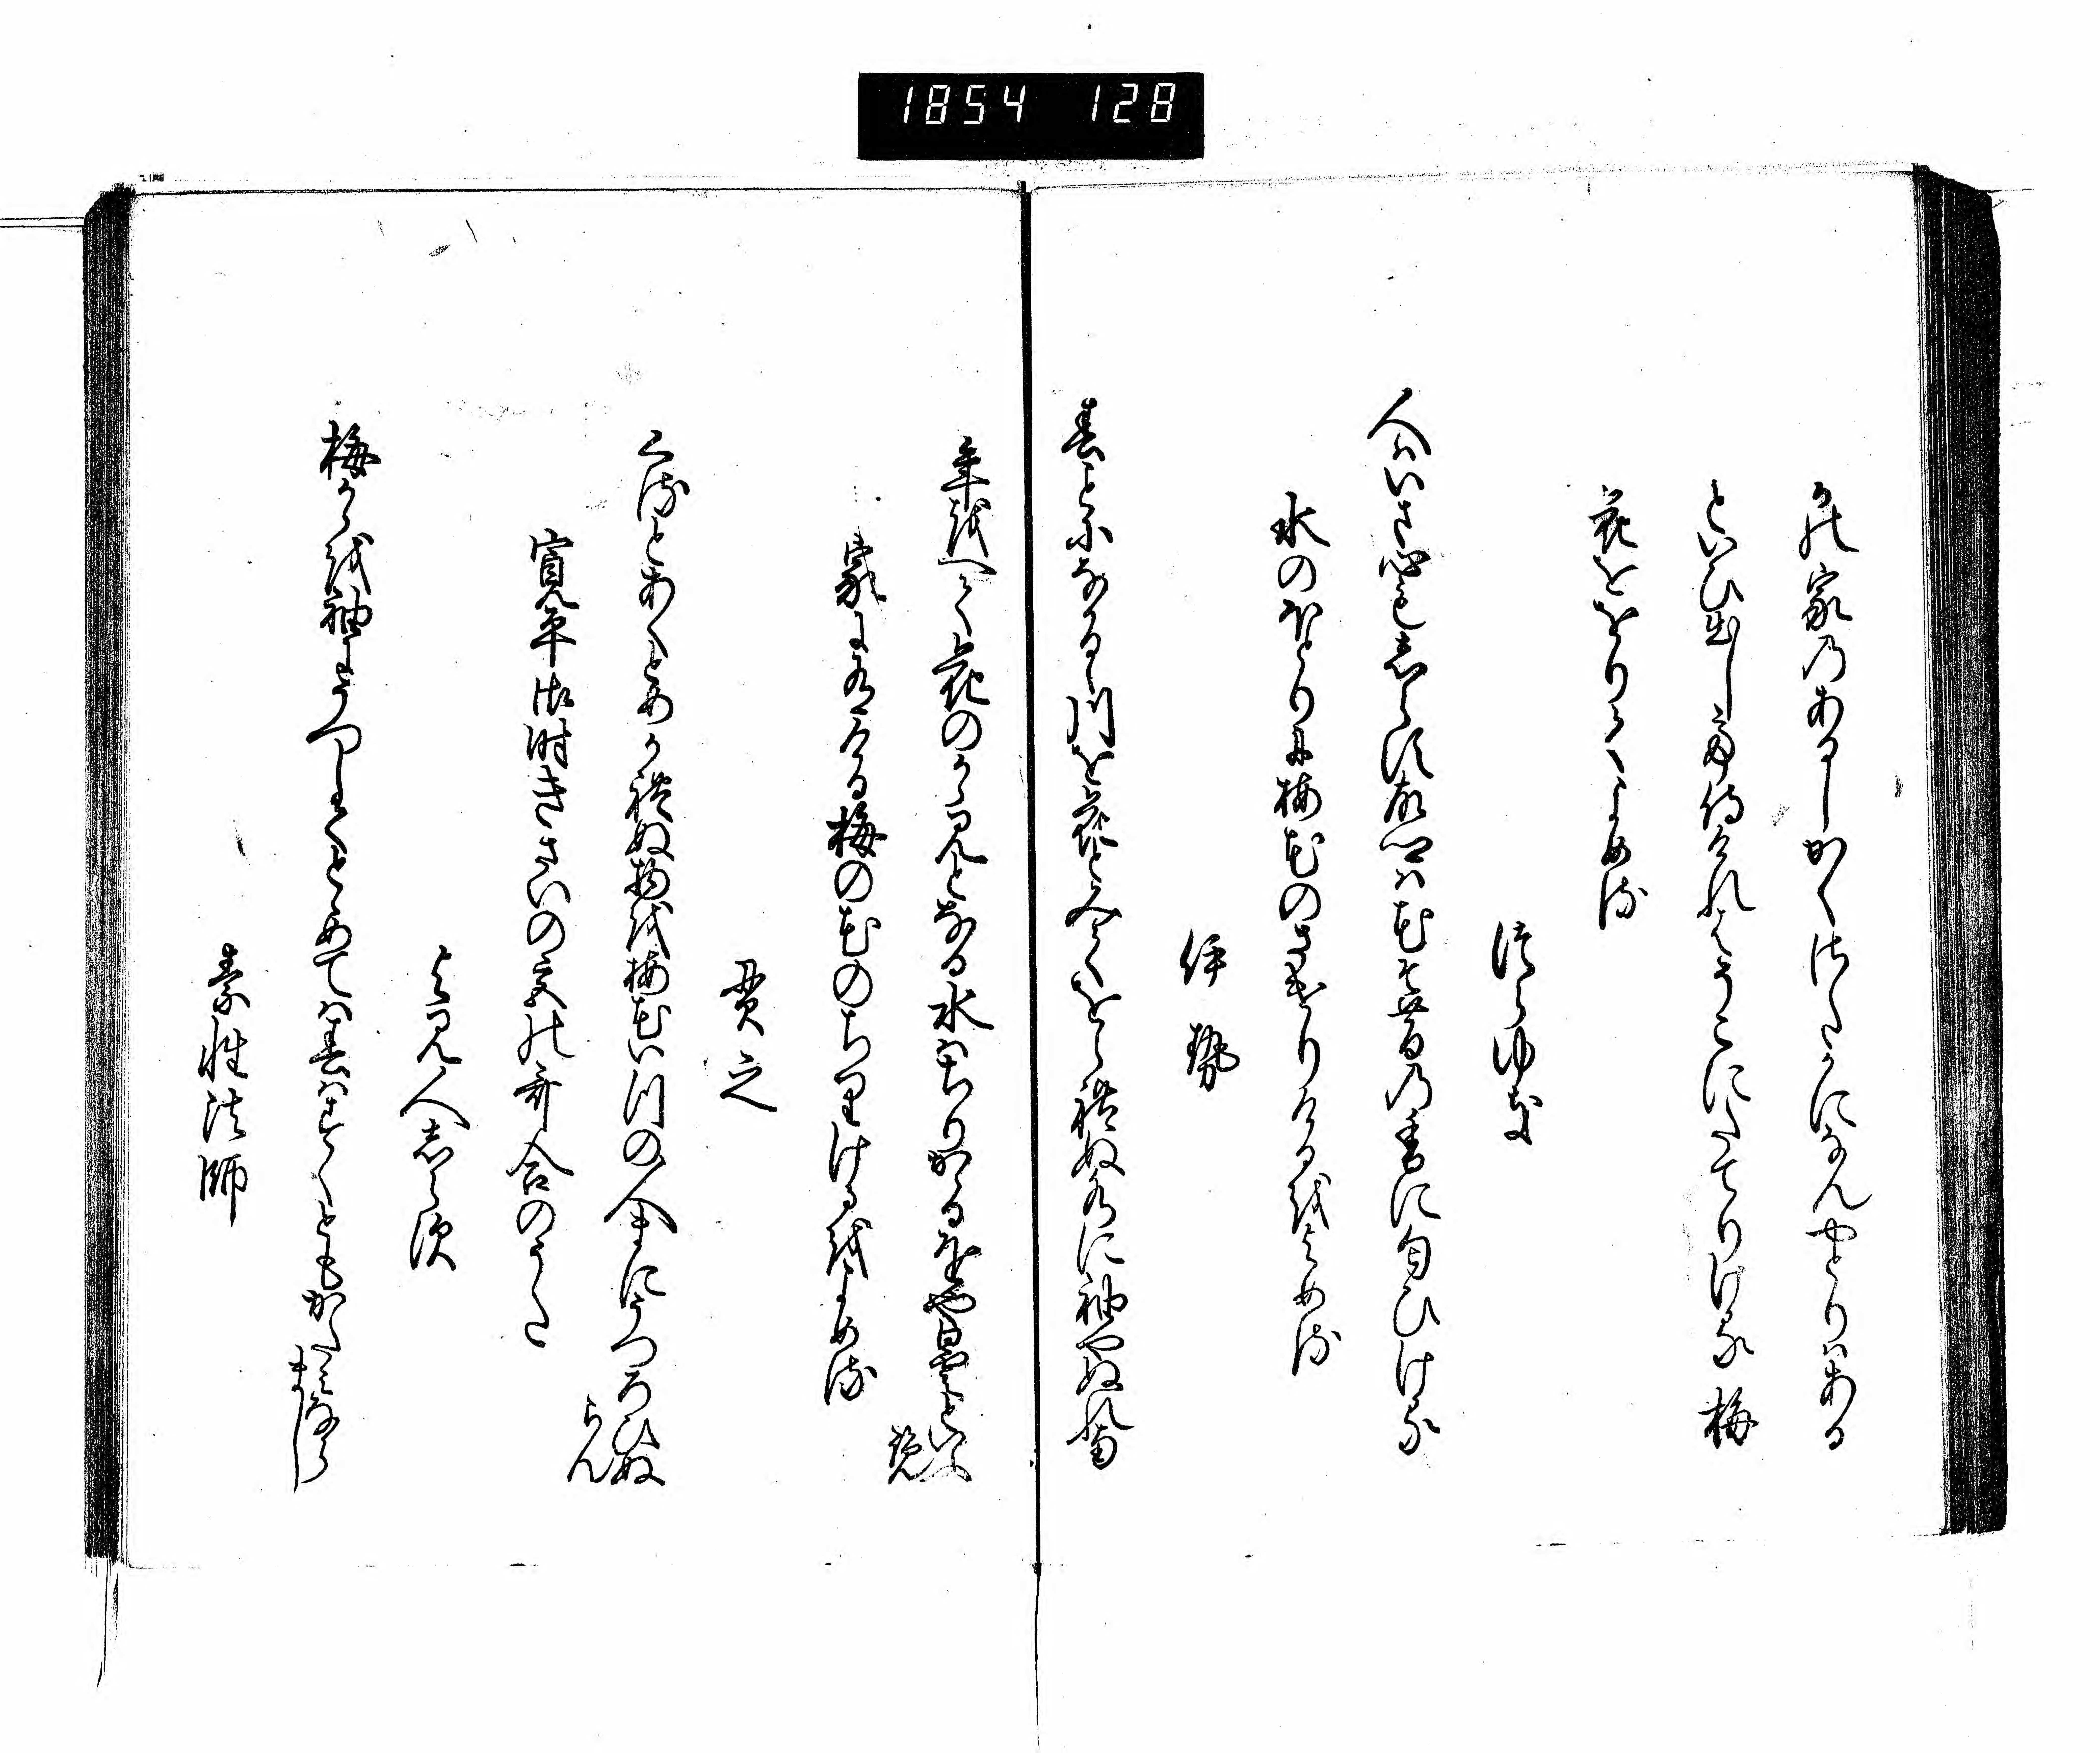 1854 128
かの家のあるしかくさたかになんやとりはある
といひ出して侍けれはそこにたてりける梅
花ををりてよめる
つらゆき
人はいさ心もしらす故郷は花そ昔の香に匂ひける
水のほとりに梅花のさけりけるをよめる
伊勢
春ことになかるゝ川を花とみてをられぬ水に袖やぬれ南
年をへて花のかゝ見となる水はちりかゝるをや曇るといふ
覧
家に有ける梅の花のちりけるをよめる
貫之
くるとあくとめかれぬ物を梅花いつの人まにうつろひぬ
らん
寛平御時きさいの宮の哥合のうた
よみ人しらす
梅かゝを袖にうつしてとゝめては春はすくともかたみなら
まし
素性法師